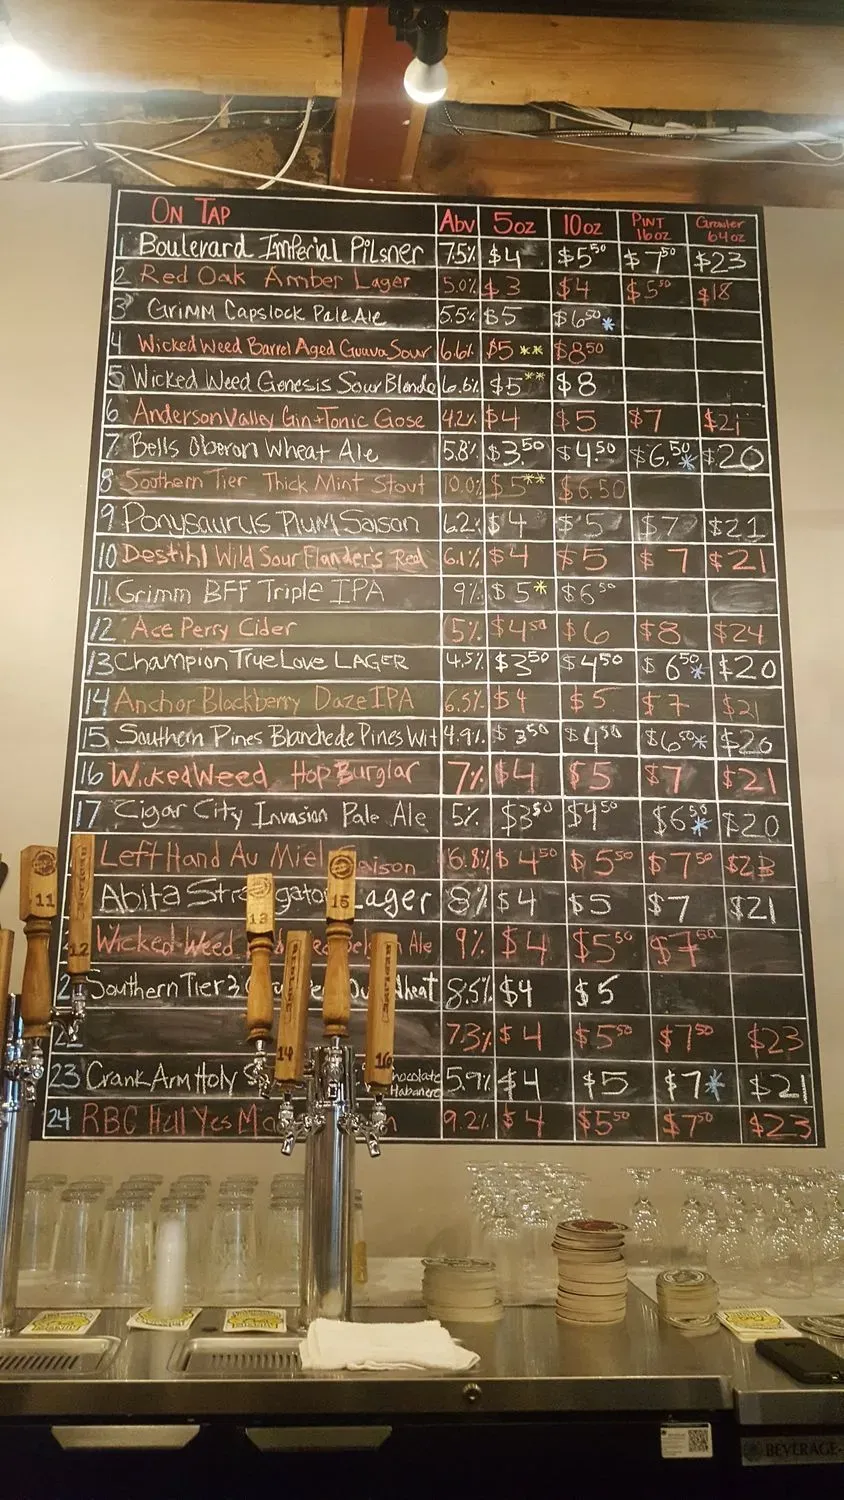 ON TAP Abv 5oz 10oz PINT 16oz Growler 64oz
1 Boulevard Imperial Pilsner 7.5% $4 $5.50 $7.50 $23
2 Red Oak Amber Lager 5.0% $3 $4 $5.50 $18
3 Grimm Capslock Pale Ale 5.5% $5 $6.50*
4 Wicked Weed Barrel Aged Guava Sour 6.6% $5** $8.50
5 Wicked Weed Genesis Sour Blonde 6.6% $5** $8
6 Anderson Valley Gin+Tonic Gose 4.2% $4 $5 $7 $21
7 Bells Oberon Wheat Ale 5.8% $3.50 $4.50 $6.50* $20
8 Southern Tier Thick Mint Stout 10.0% $5** $6.50
9 Ponysaurus Plum Saison 6.2% $4 $5 $7 $21
10 Destihl Wild Sour Flander's Red 6.1% $4 $5 $7 $21
11 Grimm BFF Triple IPA 9% $5* $6.50
12 Ace Perry Cider 5% $4.50 $6 $8 $24
13 Champion True Love LAGER 4.5% $3.50 $4.50 $6.50* $20
14 Anchor Blackberry Daze IPA 6.5% $4 $5 $7 $21
15 Southern Pines Blanchede Pines Wit 4.9% $3.50 $4.50 $6.50* $20
16 Wicked Weed Hop Burglar 7% $4 $5 $7 $21
17 Cigar City Invasion Pale Ale 5% $3.50 $4.50 $6.50* $20
Left Hand Au Miel Saison 6.8% $4.50 $5.50 $7.50 $23
Abita Strawgator Lager 8% $4 $5 $7 $21
Wicked Weed Ale 9% $4 $5.50 $7.50
2 Southern Tier 3 Wheat 8.5% $4 $5
22 7.3% $4 $5.50 $7.50 $23
23 Crank Arm Holy Chocolate Habanero 5.9% $4 $5 $7* $21
24 RBC Hell Yes Ma 9.2% $4 $5.50 $7.50 $23
11
12
13
14
15
16
BEVERAGE-